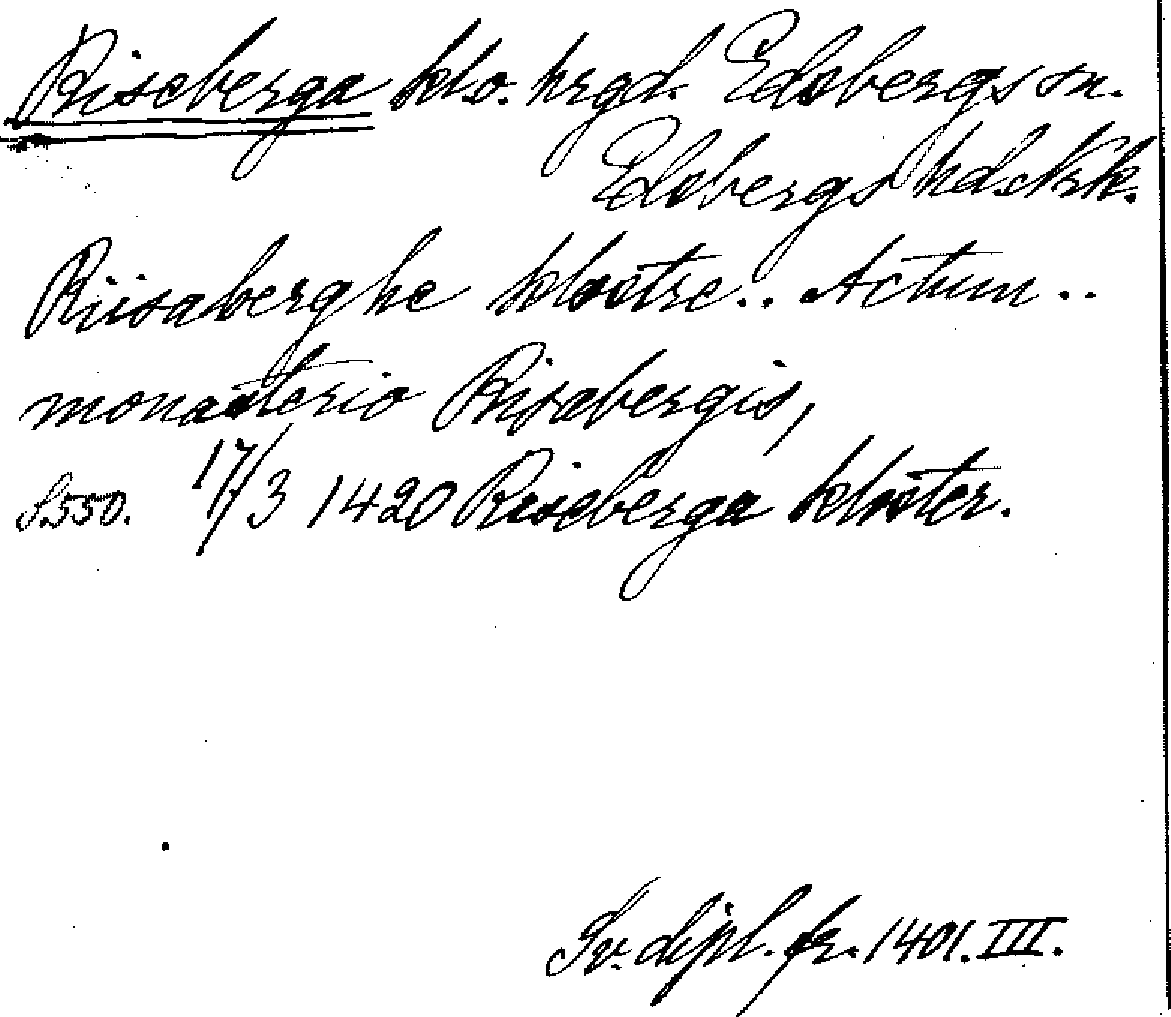 Riseberga klo. hrgd. Edsbergs sn.
Edsbergs hd Närk.
Riisaberghe klostre.. Actum..
monasterio Risæbergis,
S. 550. 17/3 1420 Riseberga kloster.
Sv. dipl. fr. 1401. III.